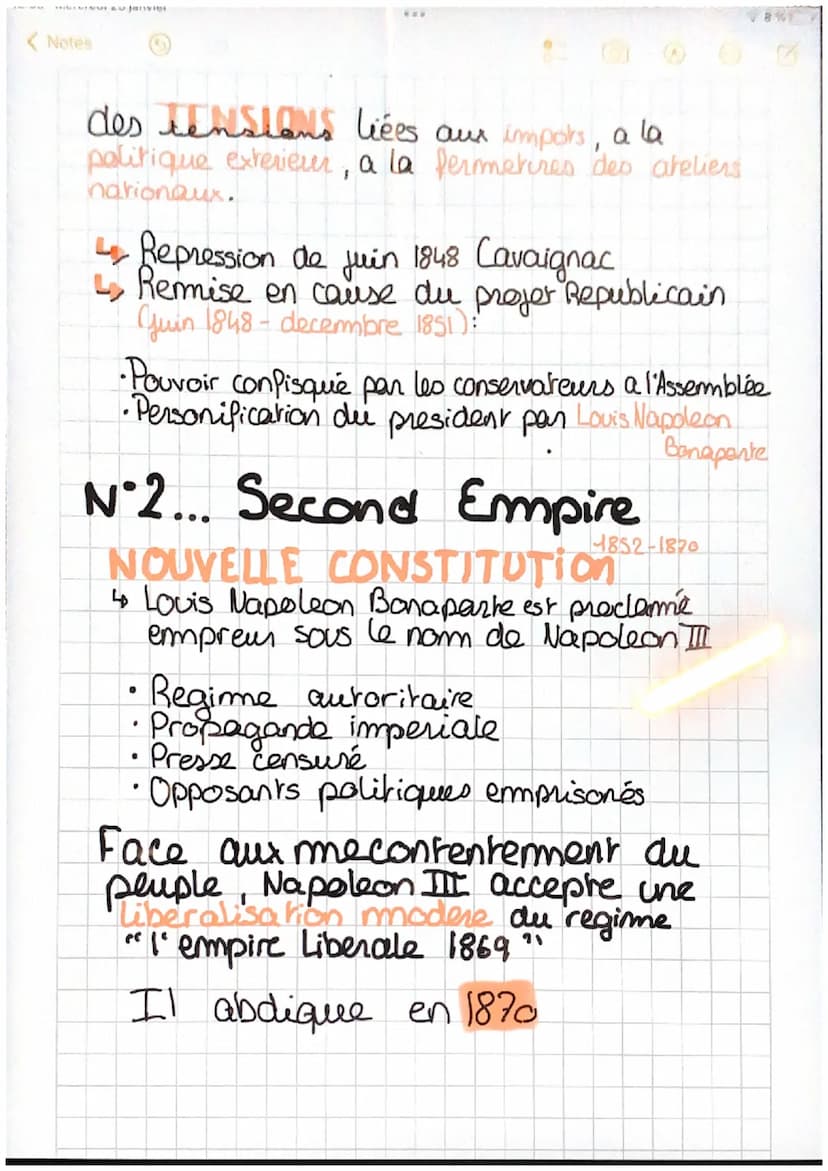 Notes
8 %
des TENSIONS tensions liées aux impots, a la
politique exterieur, a la fermetures des ateliers
nationaux.
↳ Repression de juin 1848 Cavaignac
↳ Remise en cause du projet Republicain
(juin 1848 - decembre 1851):
• Pouvoir confisqué par les conservateurs a l'Assemblée
• Personification du president par Louis Napoleon
Bonaparte
N°2... Second Empire
1852-1870
NOUVELLE CONSTITUTiON
↳ Louis Napoleon Bonaparte est proclamé
empreur sous le nom de Napoleon III
• Regime autoritaire
• Propagande imperiale
• Presse censuré
• Opposants politiques emprisonés
Face aux mecontentement du
peuple, Napoleon III accepte une
liberalisation modere du regime
"l'empire Liberale 1869"
Il abdique en 1870